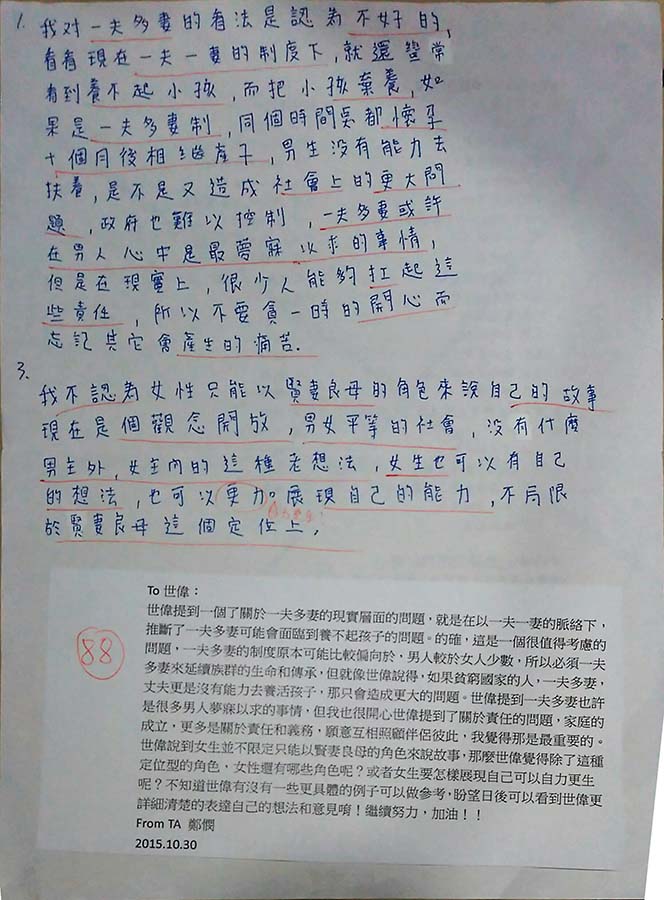 1. 我对一夫多妻的看法是認為不好的,
看看現在一夫一妻的制度下,就還常
看到養不起小孩,而把小孩棄養,如
果是一夫多妻制,同個時間都懷孕
十個月後相繼產子,男生没有能力去
扶養,是不是又造成社會上的更大問
題,政府也難以控制,一夫多妻或許
在男人心中是最夢寐以求的事情,
但是在現實上,很少人能夠扛起這
些責任,所以不要貪一時的開心而
忘記其它會產生的痛苦.
3.
我不認為女性只能以賢妻良母的角色來說自己的故事
現在是個觀念開放,男女平等的社會,没有什麼
男主外,女主內的這種老想法,女生也可以有自己
的想法,也可以更力。展現自己的能力,不局限
於賢妻良母這個定位上,
88
To 世偉：
世偉提到一個了關於一夫多妻的現實層面的問題，就是在以一夫一妻的脈絡下，
推斷了一夫多妻可能會面臨到養不起孩子的問題。的確，這是一個很值得考慮的
問題，一夫多妻的制度原本可能比較偏向於，男人較於女人少數，所以必須一夫
多妻來延續族群的生命和傳承，但就像世偉說得，如果貧窮國家的人，一夫多妻，
丈夫更是沒有能力去養活孩子，那只會造成更大的問題。世偉提到一夫多妻也許
是很多男人夢寐以求的事情，但我也很開心世偉提到了關於責任的問題，家庭的
成立，更多是關於責任和義務，願意互相照顧伴侶彼此，我覺得那是最重要的。
世偉說到女生並不限定只能以賢妻良母的角色來說故事，那麼世偉覺得除了這種
定位型的角色，女性還有哪些角色呢？或者女生要怎樣展現自己可以自力更生
呢？不知道世偉有沒有一些更具體的例子可以做參考，盼望日後可以看到世偉更
詳細清楚的表達自己的想法和意見唷！繼續努力，加油！！
From TA 鄭憫
2015.10.30